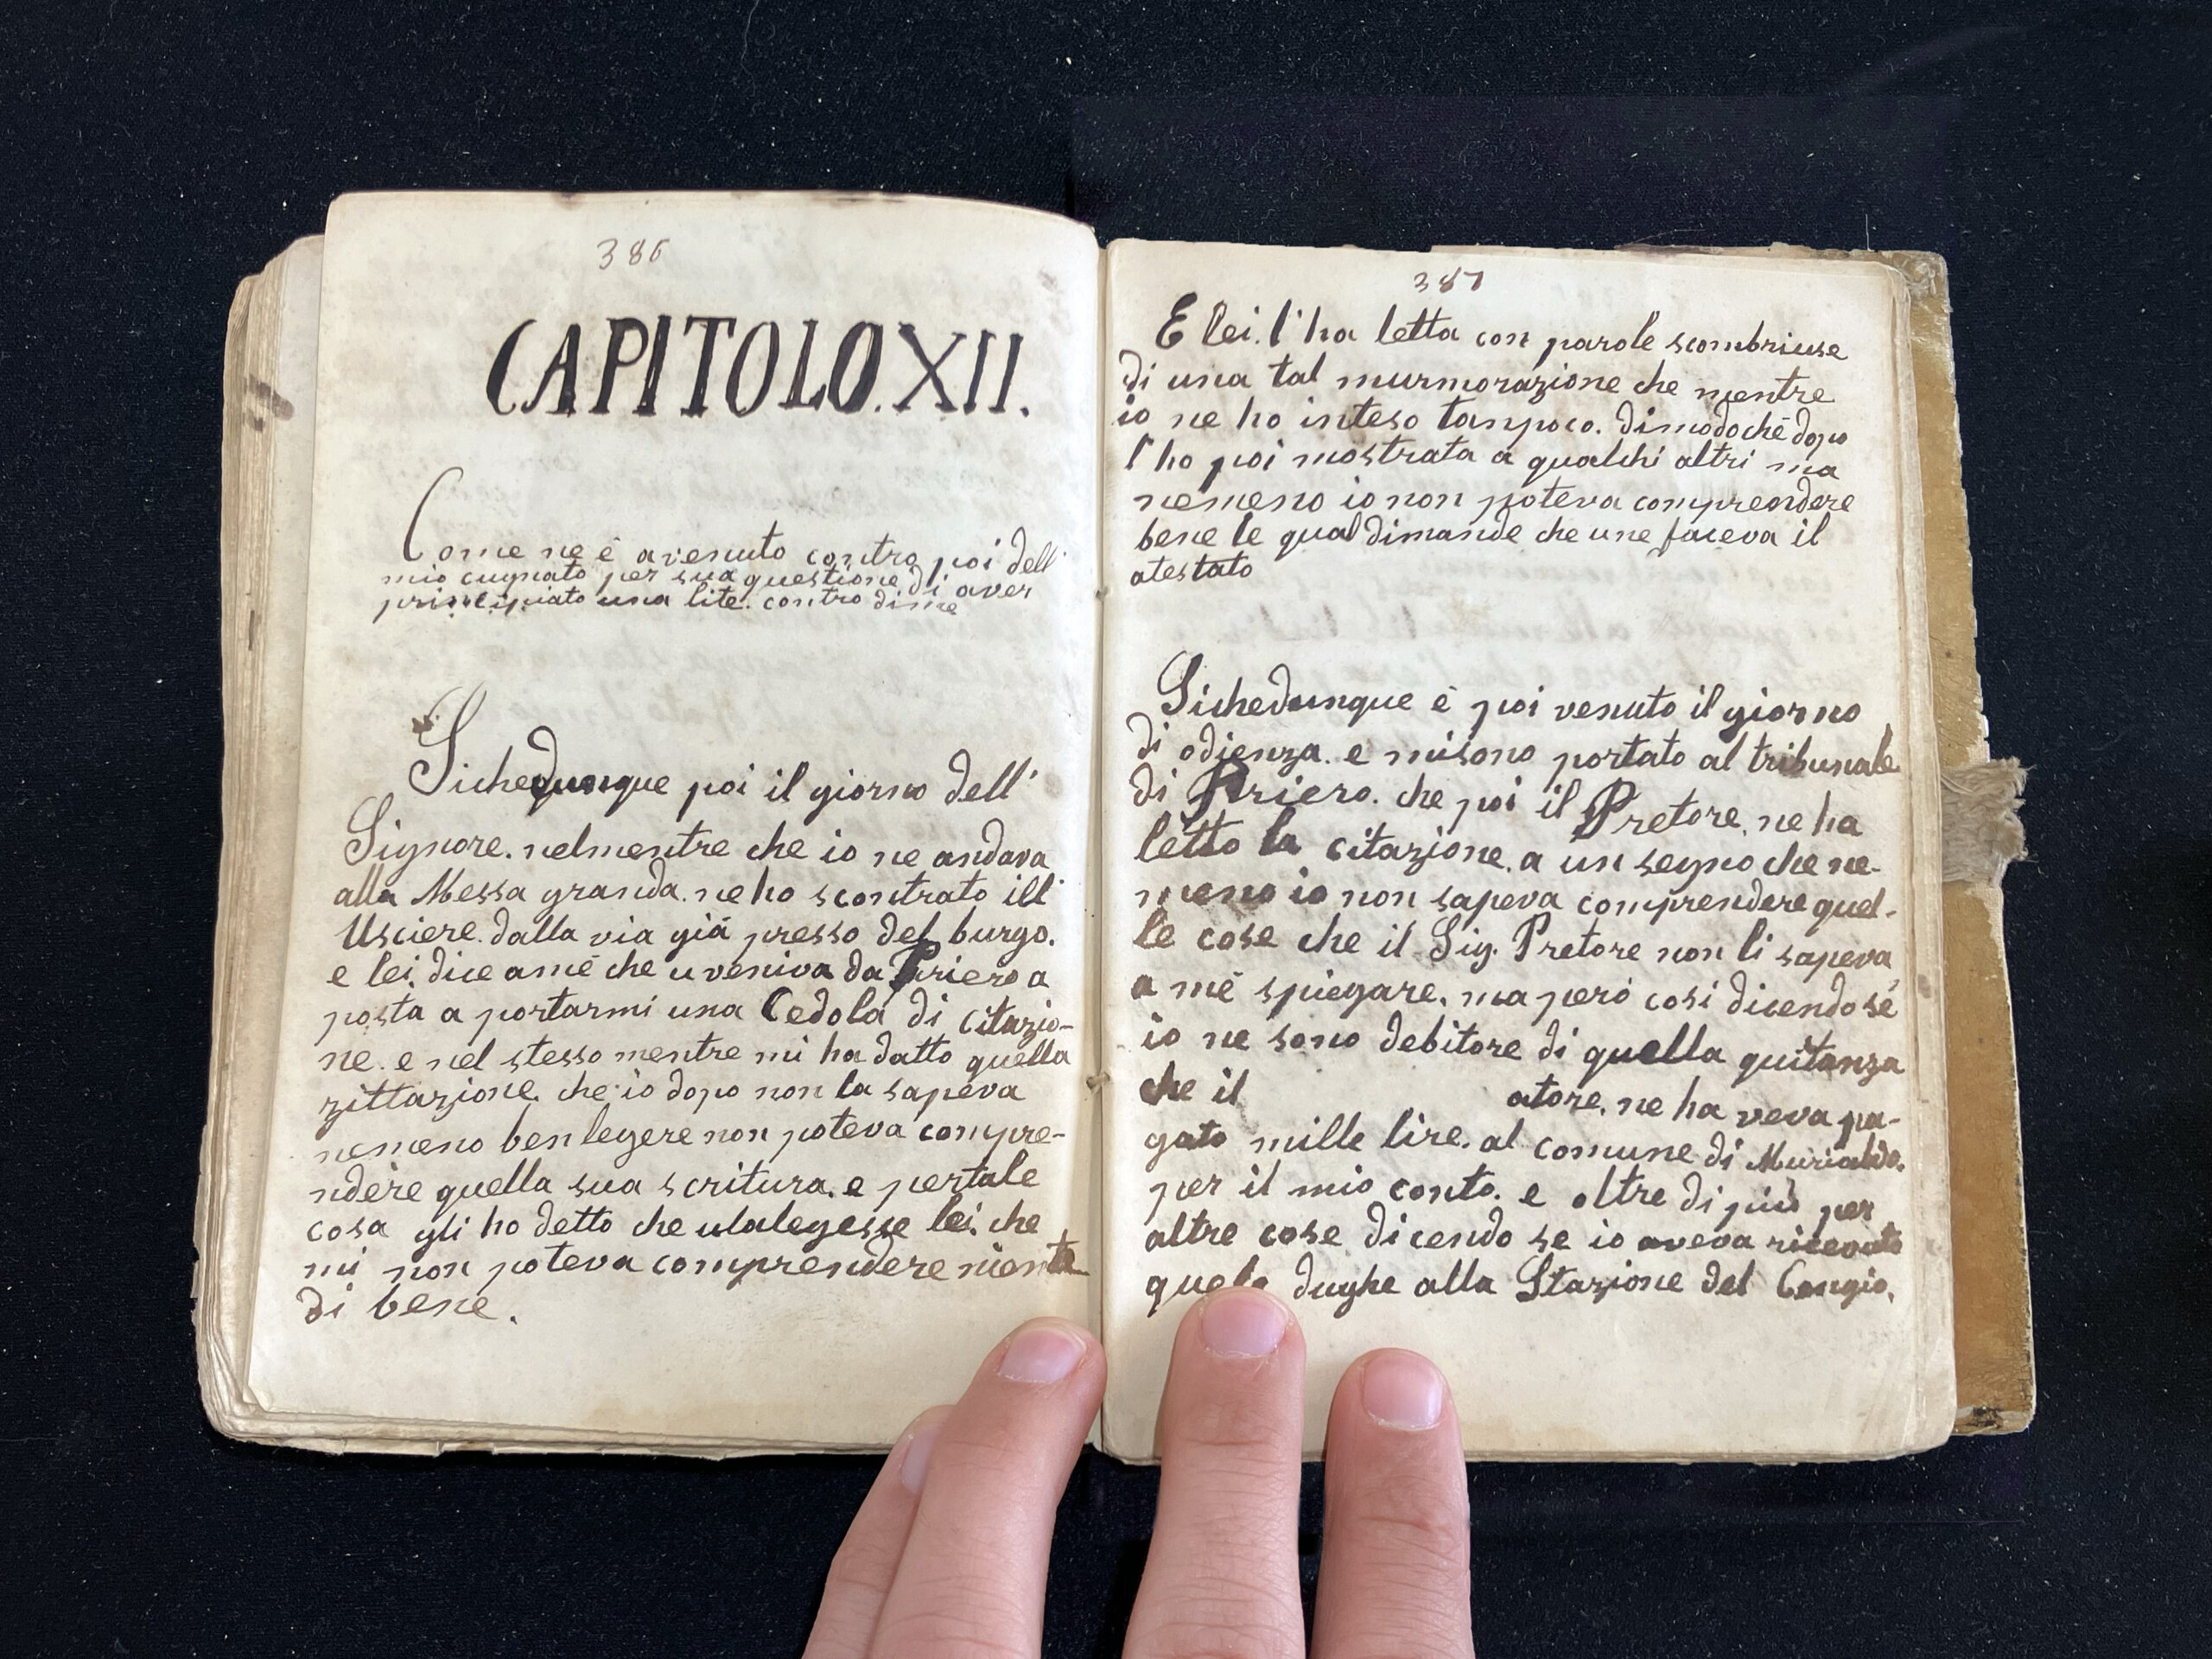 386
CAPITOLO.XII.
Come ne è avenuto contro poi dell'
mio cugnato per sua questione di aver
principiato una lite. contro dime
Sichedunque poi il giorno dell'
Signore. nelmentre che io ne andava
alla Messa granda. ne ho scontrato ill'
Usciere. dalla via già presso del burgo.
e lei. dice amè che u veniva da Priero a
posta a portarmi una Cedola di citazio-
ne. e nel stesso mentre mi ha datto quella
zittazione. che io dopo non la sapeva
nemeno ben legere non poteva compre-
ndere quella sua scritura. e pertale
cosa gli ho detto che ulalegesse lei. che
mi non poteva comprendere niente
di bene.
387
E lei. l'ha letta con parole scombriuse
di una tal murmorazione che mentre
io ne ho inteso tanpoco. dimodochè dopo
l'ho poi mostrata a qualchi altri ma
nemeno io non poteva comprendere
bene le qual dimande che une faceva il
atestato
Sichedunque è poi venuto il giorno
di odienza. e misono portato al tribunale
di Priero. che poi il Pretore. ne ha
letto la citazione. a un segno che ne-
meno io non sapeva comprendere quel-
le cose che il Sig. Pretore non li sapeva
a mè spiegare. ma però così dicendo sè
io ne sono debitore di quella quitanza
che il atore. ne ha veva pa-
gato mille lire. al comune di Murialdo.
per il mio conto. e oltre di più per
altre cose dicendo se io aveva ricevuto
dughe alla Stazione del Cengio.